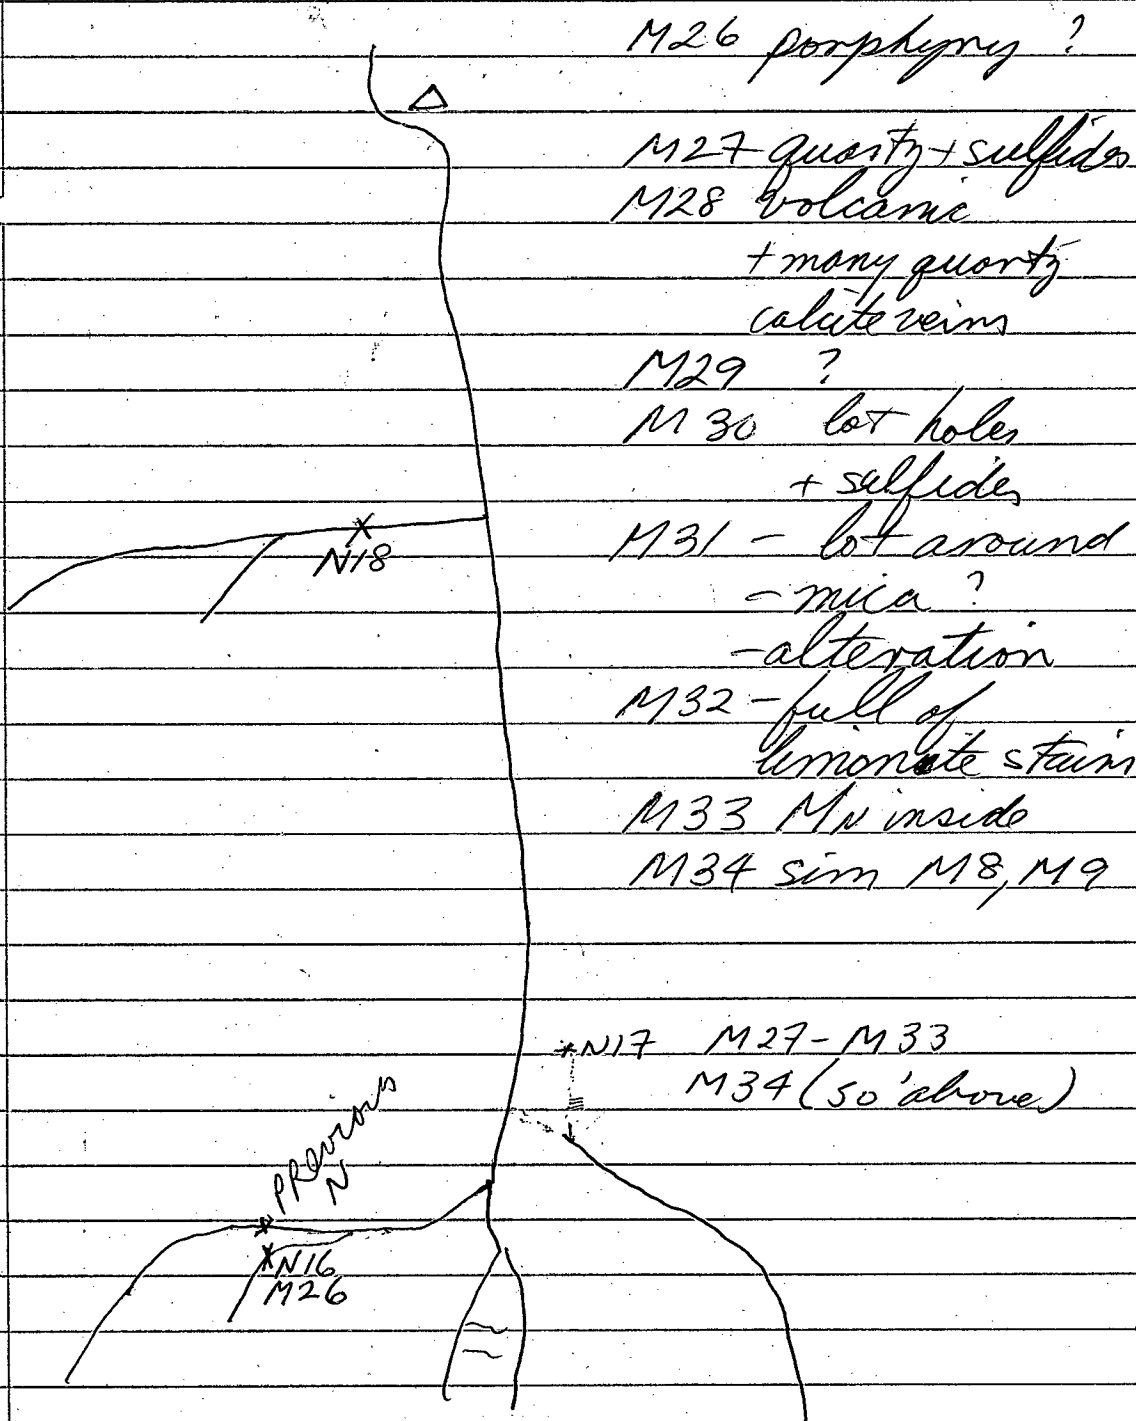 M26 porphyry ?
M27 quartz + sulfides
M28 volcanic
+ many quartz
calcite veins
M29 ?
M30 lot holes
+ sulfides
N18
M31 - lot around
- mica ?
- alteration
M32 - full of
limonite stains
M33 Mn inside
M34 sim M8, M9
N17 M27 - M33
M34 (50' above)
PREVIOUS
N
N16
M26